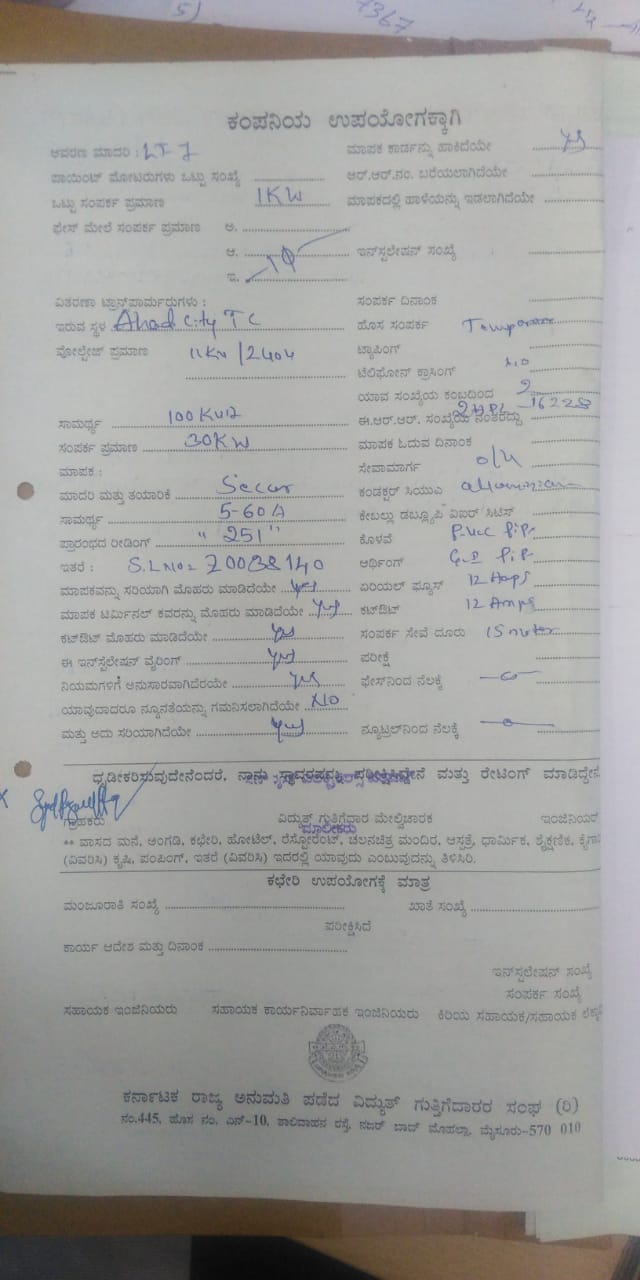 5)
ಕಂಪನಿಯ ಉಪಯೋಗಕ್ಕಾಗಿ
ಆವರಣ ಮಾದರಿ : LT-7
ಮಾಪಕ ಕಾರ್ಡನ್ನು ಹಾಕಿದೆಯೇ yes
ಪಾಯಿಂಟ್ ಮೋಟರುಗಳು ಒಟ್ಟು ಸಂಖ್ಯೆ
ಆರ್.ಆರ್.ನಂ. ಬರೆಯಲಾಗಿದೆಯೇ
ಒಟ್ಟು ಸಂಪರ್ಕ ಪ್ರಮಾಣ 1KW
ಮಾಪಕದಲ್ಲಿ ಹಾಳೆಯನ್ನು ಇಡಲಾಗಿದೆಯೇ
ಫೇಸ್ ಮೇಲೆ ಸಂಪರ್ಕ ಪ್ರಮಾಣ ಅ.
ಆ. 1Φ
ಇನ್‌ಸ್ಟಲೇಷನ್ ಸಂಖ್ಯೆ
ಇ.
ವಿತರಣಾ ಟ್ರಾನ್ಸ್‌ಪಾರ್ಮರುಗಳು :
ಸಂಪರ್ಕ ದಿನಾಂಕ
ಇರುವ ಸ್ಥಳ Ahad City TC
ಹೊಸ ಸಂಪರ್ಕ
ವೋಲ್ಟೇಜ್ ಪ್ರಮಾಣ 11KV/240V
ಟ್ಯಾಪಿಂಗ್
ಟೆಲಿಫೋನ್ ಕ್ರಾಸಿಂಗ್ NO
ಯಾವ ಸಂಖ್ಯೆಯ ಕಂಬದಿಂದ 2
ಸಾಮರ್ಥ್ಯ 100KVA
ಈ.ಆರ್.ಆರ್. ಸಂಖ್ಯೆಯ ನಂತರದ್ದು
ಸಂಪರ್ಕ ಪ್ರಮಾಣ 30KW
ಮಾಪಕ ಓದುವ ದಿನಾಂಕ
ಮಾಪಕ :
ಸೇವಾಮಾರ್ಗ O/H
ಮಾದರಿ ಮತ್ತು ತಯಾರಿಕೆ Secur
ಕಂಡಕ್ಟರ್ ಸಿಯುಎ
ಸಾಮರ್ಥ್ಯ 5-60A
ಕೇಬಲ್ಲು ಡಬ್ಲ್ಯೂಪಿ ವಿಐರ್ ಸಿಟಿಸ್
ಪ್ರಾರಂಭದ ರೀಡಿಂಗ್ "251"
ಕೊಳವೆ P.V.C PiP
ಇತರೆ : S.L No= 70038140
ಆರ್ಥಿಂಗ್ G.I PiP
ಮಾಪಕವನ್ನು ಸರಿಯಾಗಿ ಮೊಹರು ಮಾಡಿದೆಯೇ yes
ಏರಿಯಲ್ ಫ್ಯೂಸ್ 12 Amps
ಮಾಪಕ ಟರ್ಮಿನಲ್ ಕವರನ್ನು ಮೊಹರು ಮಾಡಿದೆಯೇ yes
ಕಟ್‌ಔಟ್ 12 Amps
ಕಟ್‌ಔಟ್ ಮೊಹರು ಮಾಡಿದೆಯೇ yes
ಸಂಪರ್ಕ ಸೇವೆ ದೂರು 15 meter
ಈ ಇನ್‌ಸ್ಟಲೇಷನ್ ವೈರಿಂಗ್ yes
ಪರೀಕ್ಷೆ
ನಿಯಮಗಳಿಗೆ ಅನುಸಾರವಾಗಿದೆರೆಯೇ yes
ಫೇಸ್‌ನಿಂದ ನೆಲಕ್ಕೆ —o—
ಯಾವುದಾದರೂ ನ್ಯೂನತೆಯನ್ನು ಗಮನಿಸಲಾಗಿದೆಯೇ NO
ಮತ್ತು ಅದು ಸರಿಯಾಗಿದೆಯೇ yes
ನ್ಯೂಟ್ರಲ್‌ನಿಂದ ನೆಲಕ್ಕೆ —o—
ಧೃಡೀಕರಿಸುವುದೇನೆಂದರೆ, ನಾನು ಪರೀಕ್ಷಿಸಿದ್ದೇನೆ ಮತ್ತು ರೇಟಿಂಗ್ ಮಾಡಿದ್ದೇನೆ
ಗ್ರಾಹಕರು ವಿದ್ಯುತ್ ಗುತ್ತಿಗೆದಾರ ಮೇಲ್ವಿಚಾರಕ ಇಂಜಿನಿಯರ್
ಮಾಲೀಕರು
** ವಾಸದ ಮನೆ, ಅಂಗಡಿ, ಕಛೇರಿ, ಹೋಟೆಲ್, ರೆಸ್ಟೋರೆಂಟ್, ಚಲನಚಿತ್ರ ಮಂದಿರ, ಆಸ್ಪತ್ರೆ, ಧಾರ್ಮಿಕ, ಶೈಕ್ಷಣಿಕ,
(ವಿವರಿಸಿ) ಕೃಷಿ, ಪಂಪಿಂಗ್, ಇತರೆ (ವಿವರಿಸಿ) ಇದರಲ್ಲಿ ಯಾವುದು ಎಂಬುವುದನ್ನು ತಿಳಿಸಿರಿ.
ಕಛೇರಿ ಉಪಯೋಗಕ್ಕೆ ಮಾತ್ರ
ಮಂಜೂರಾತಿ ಸಂಖ್ಯೆ
ಖಾತೆ ಸಂಖ್ಯೆ
ಪರೀಕ್ಷಿಸಿದೆ
ಕಾರ್ಯ ಆದೇಶ ಮತ್ತು ದಿನಾಂಕ
ಇನ್‌ಸ್ಟಲೇಷನ್ ಸಂಖ್ಯೆ
ಸಂಪರ್ಕ ಸಂಖ್ಯೆ
ಸಹಾಯಕ ಇಂಜಿನಿಯರು ಸಹಾಯಕ ಕಾರ್ಯನಿರ್ವಾಹಕ ಇಂಜಿನಿಯರು ಕಿರಿಯ ಸಹಾಯಕ/ಸಹಾಯಕ
ಕರ್ನಾಟಕ ರಾಜ್ಯ ಅನುಮತಿ ಪಡೆದ ವಿದ್ಯುತ್ ಗುತ್ತಿಗೆದಾರರ ಸಂಘ (ರಿ)
ನಂ.445, ಹೊಸ ನಂ. ಎನ್-10, ಶಾಲಿವಾಹನ ರಸ್ತೆ, ನಜರ್ ಬಾದ್ ಮೊಹಲ್ಲಾ, ಮೈಸೂರು-570 010